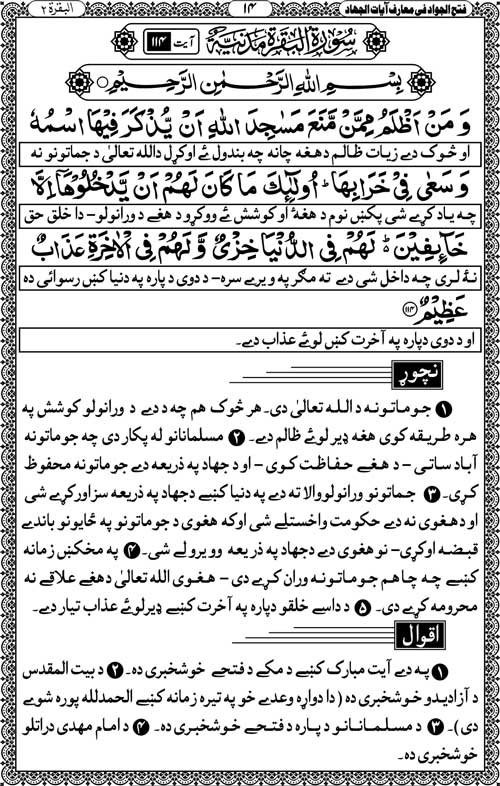 فتح الجواد فى معارف آيات الجهاد
١٤
البقرة ٢
سُوْرَةُ الْبَقَرَةِ مَدَنِيَّةٌ آيت ١١٤
بِسْمِ اللهِ الرَّحْمٰنِ الرَّحِيْمِ ○
وَ مَنْ اَظْلَمُ مِمَّنْ مَّنَعَ مَسٰجِدَ اللهِ اَنْ يُّذْكَرَ فِيْهَا اسْمُهٗ
او څوک دے زيات ظالم د هغه چانه چه بندول ئے اوکړل دالله تعالىٰ د جماتونو نه
وَ سَعٰى فِيْ خَرَابِهَا ؕ اُولٰٓئِكَ مَا كَانَ لَهُمْ اَنْ يَّدْخُلُوْهَاۤ اِلَّا
چه ياد کړے شى پکښ نوم د هغۀ او کوشش ئے ووکړو د هغے د ورانولو- دا خلق حق
خَآئِفِيْنَ ؕ لَهُمْ فِي الدُّنْيَا خِزْيٌ وَّ لَهُمْ فِي الْاٰخِرَةِ عَذَابٌ
نۀ لرى چه داخل شى دے ته مګر په ويرے سره- د دوى د پاره په دنيا کښ رسوائى ده
عَظِيْمٌ ﴿١١٤﴾
او د دوى دپاره په آخرت کښ لوئے عذاب دے۔
نچوړ
١ جوماتونه د الله تعالىٰ دى۔ هر څوک هم چه د دے د ورانولو کوشش په
هره طريقه کوى هغه ډير لوئے ظالم دے۔ ٢ مسلمانانو له پکار دى چه جوماتونه
آباد ساتى - د هغے حفاظت کوى - او د جهاد په ذريعه دے جوماتونه محفوظ
کړى۔ ٣ جماتونو ورانولو والا ته دے په دنيا کښے دجهاد په ذريعه سزا ورکړے شى
او د هغوى نه دے حکومت واخستلے شى اوکه هغوى د جوماتونو په ځايونو باندے
قبضه اوکړى- نو هغوى دے دجهاد په ذريعه وويرولے شى۔ ٤ په مخکښ زمانه
کښے چه چا هم جوماتونه وران کړے دى - هغوى الله تعالىٰ دهغے علاقے نه
محرومه کړے دى۔ ٥ د داسے خلقو دپاره په آخرت کښے ډيرلوئے عذاب تيار دے۔
اقوال
١ په دے آيت مبارک کښے د مکے د فتحے خوشخبرى ده۔ ٢ د بيت المقدس
د آزاديدو خوشخبرى ده ( دا دواړه وعدے خو په تيره زمانه کښے الحمدلله پوره شوے
دى)۔ ٣ د مسلمانانو د پاره د فتحے خوشخبرى ده۔ ٤ د امام مهدى دراتلو
خوشخبرى ده۔